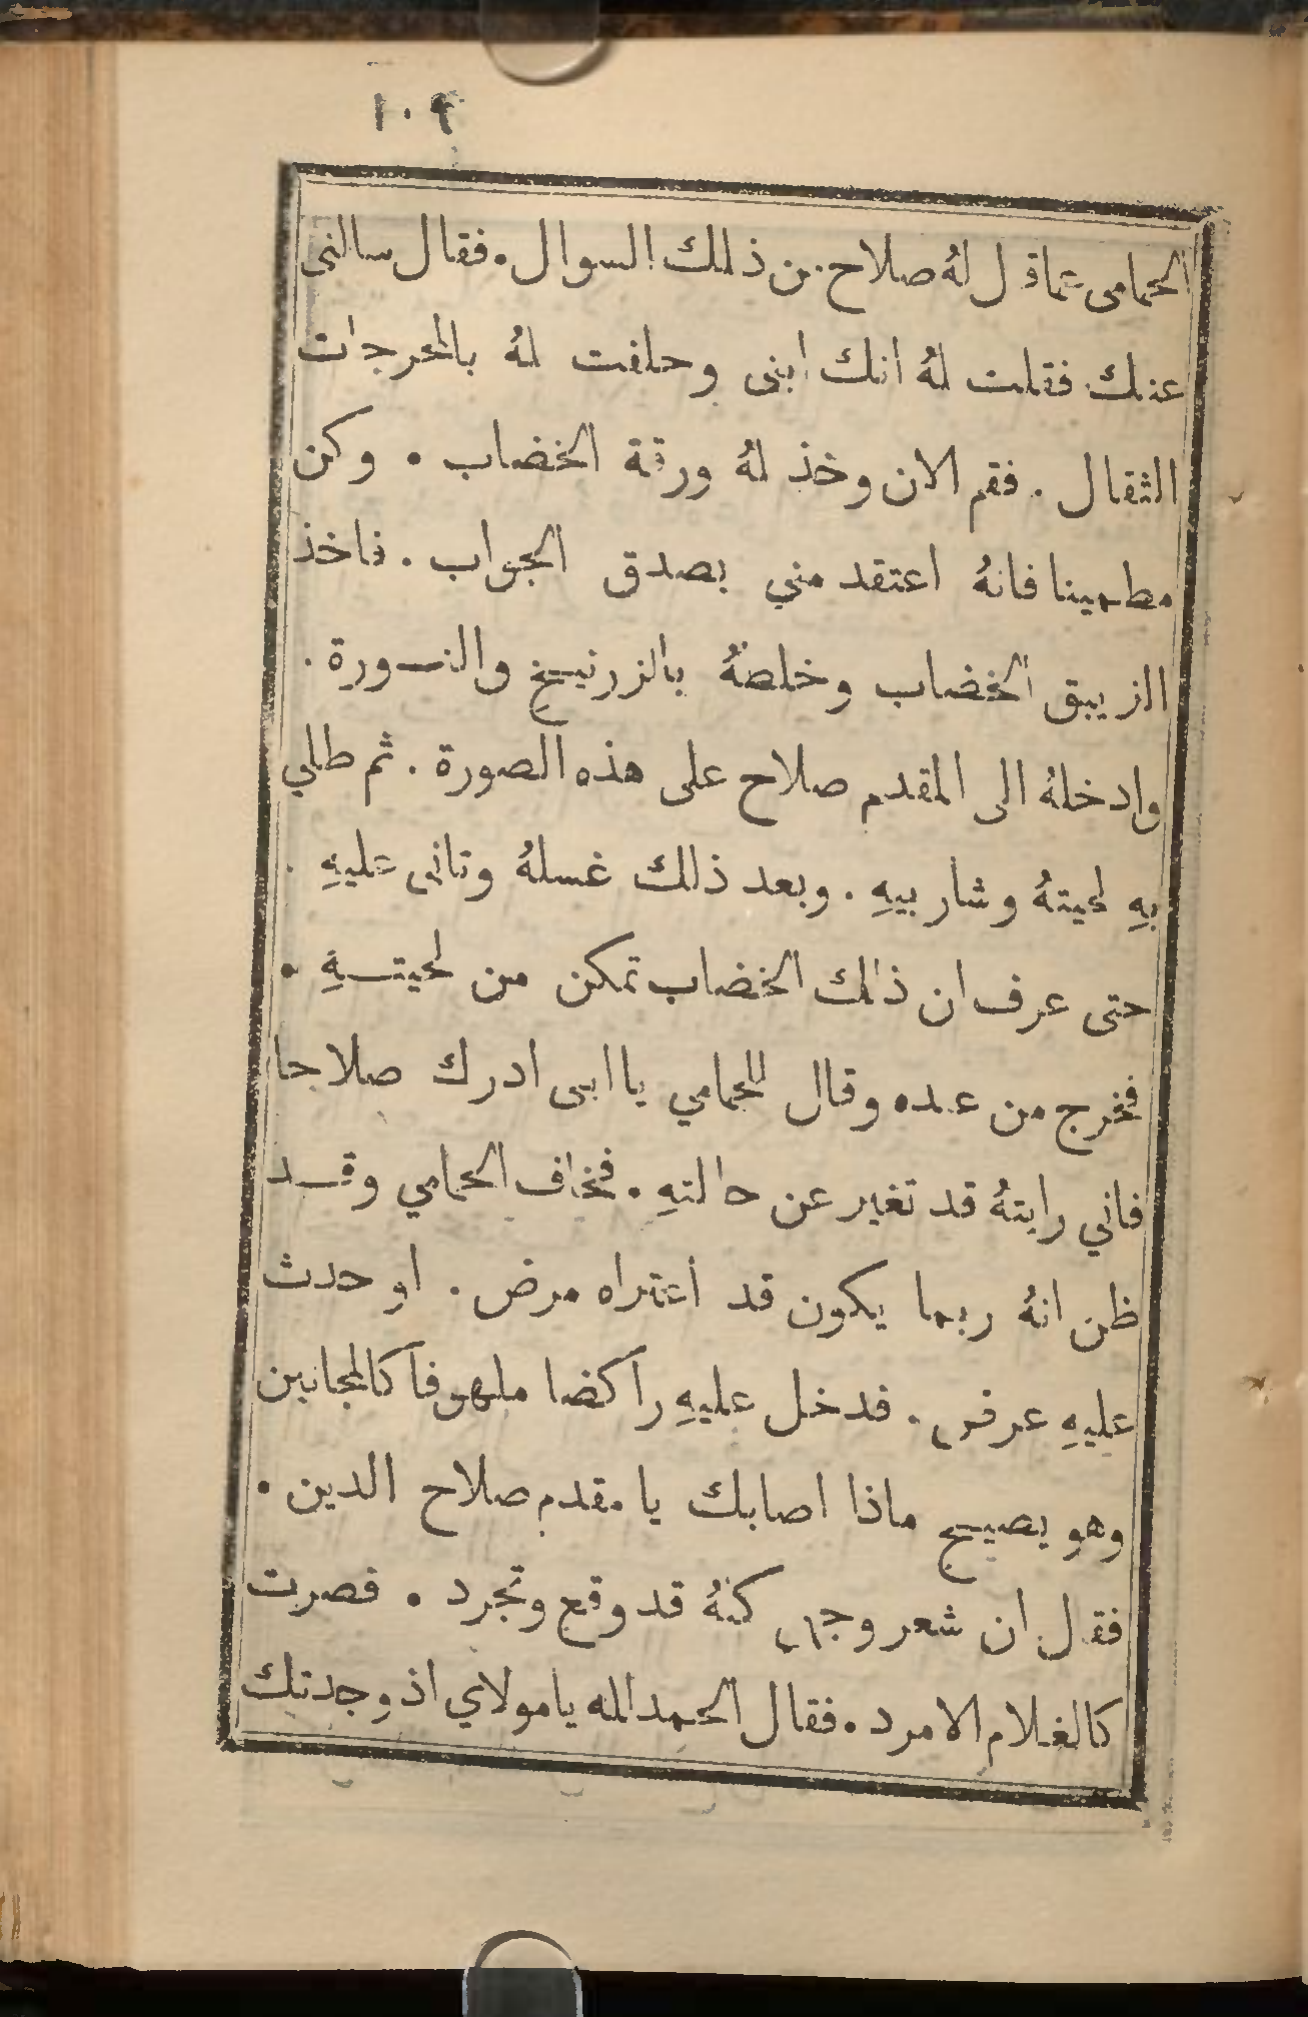 ١٠٩
الحمامى عما قال لهُ صلاح من ذلك السوال. فقال سالنى
عنك فقلت لهُ انك ابنى وحلفت لهُ بالمحرجات
الثقال. فقم الان وخذ لهُ ورقة الخضاب. وكن
مطمينا فانهُ اعتقد مني بصدق الجواب. فاخذ
الزيبق الخضاب وخلطهُ بالزرنيخ والنورة.
وادخلهُ الى المقدم صلاح على هذه الصورة. ثم طلي
بهِ لحيتهُ وشاربيهِ. وبعد ذلك غسلهُ وتانى عليهِ.
حتى عرف ان ذلك الخضاب تمكن من لحيتهِ.
فخرج من عنده وقال للحمامي يا ابى ادرك صلاحا
فاني رايتهُ قد تغير عن حالتهِ. فخاف الحمامي وقد
ظن انهُ ربما يكون قد اعتراه مرض. او حدث
عليهِ عرض. فدخل عليهِ راكضا ملهوفا كالمجانين
وهو يصيح ماذا اصابك يا مقدم صلاح الدين.
فقال ان شعر وجهى كلهُ قد وقع وتجرد. فصرت
كالغلام الامرد. فقال الحمد لله يا مولاي اذ وجدتك